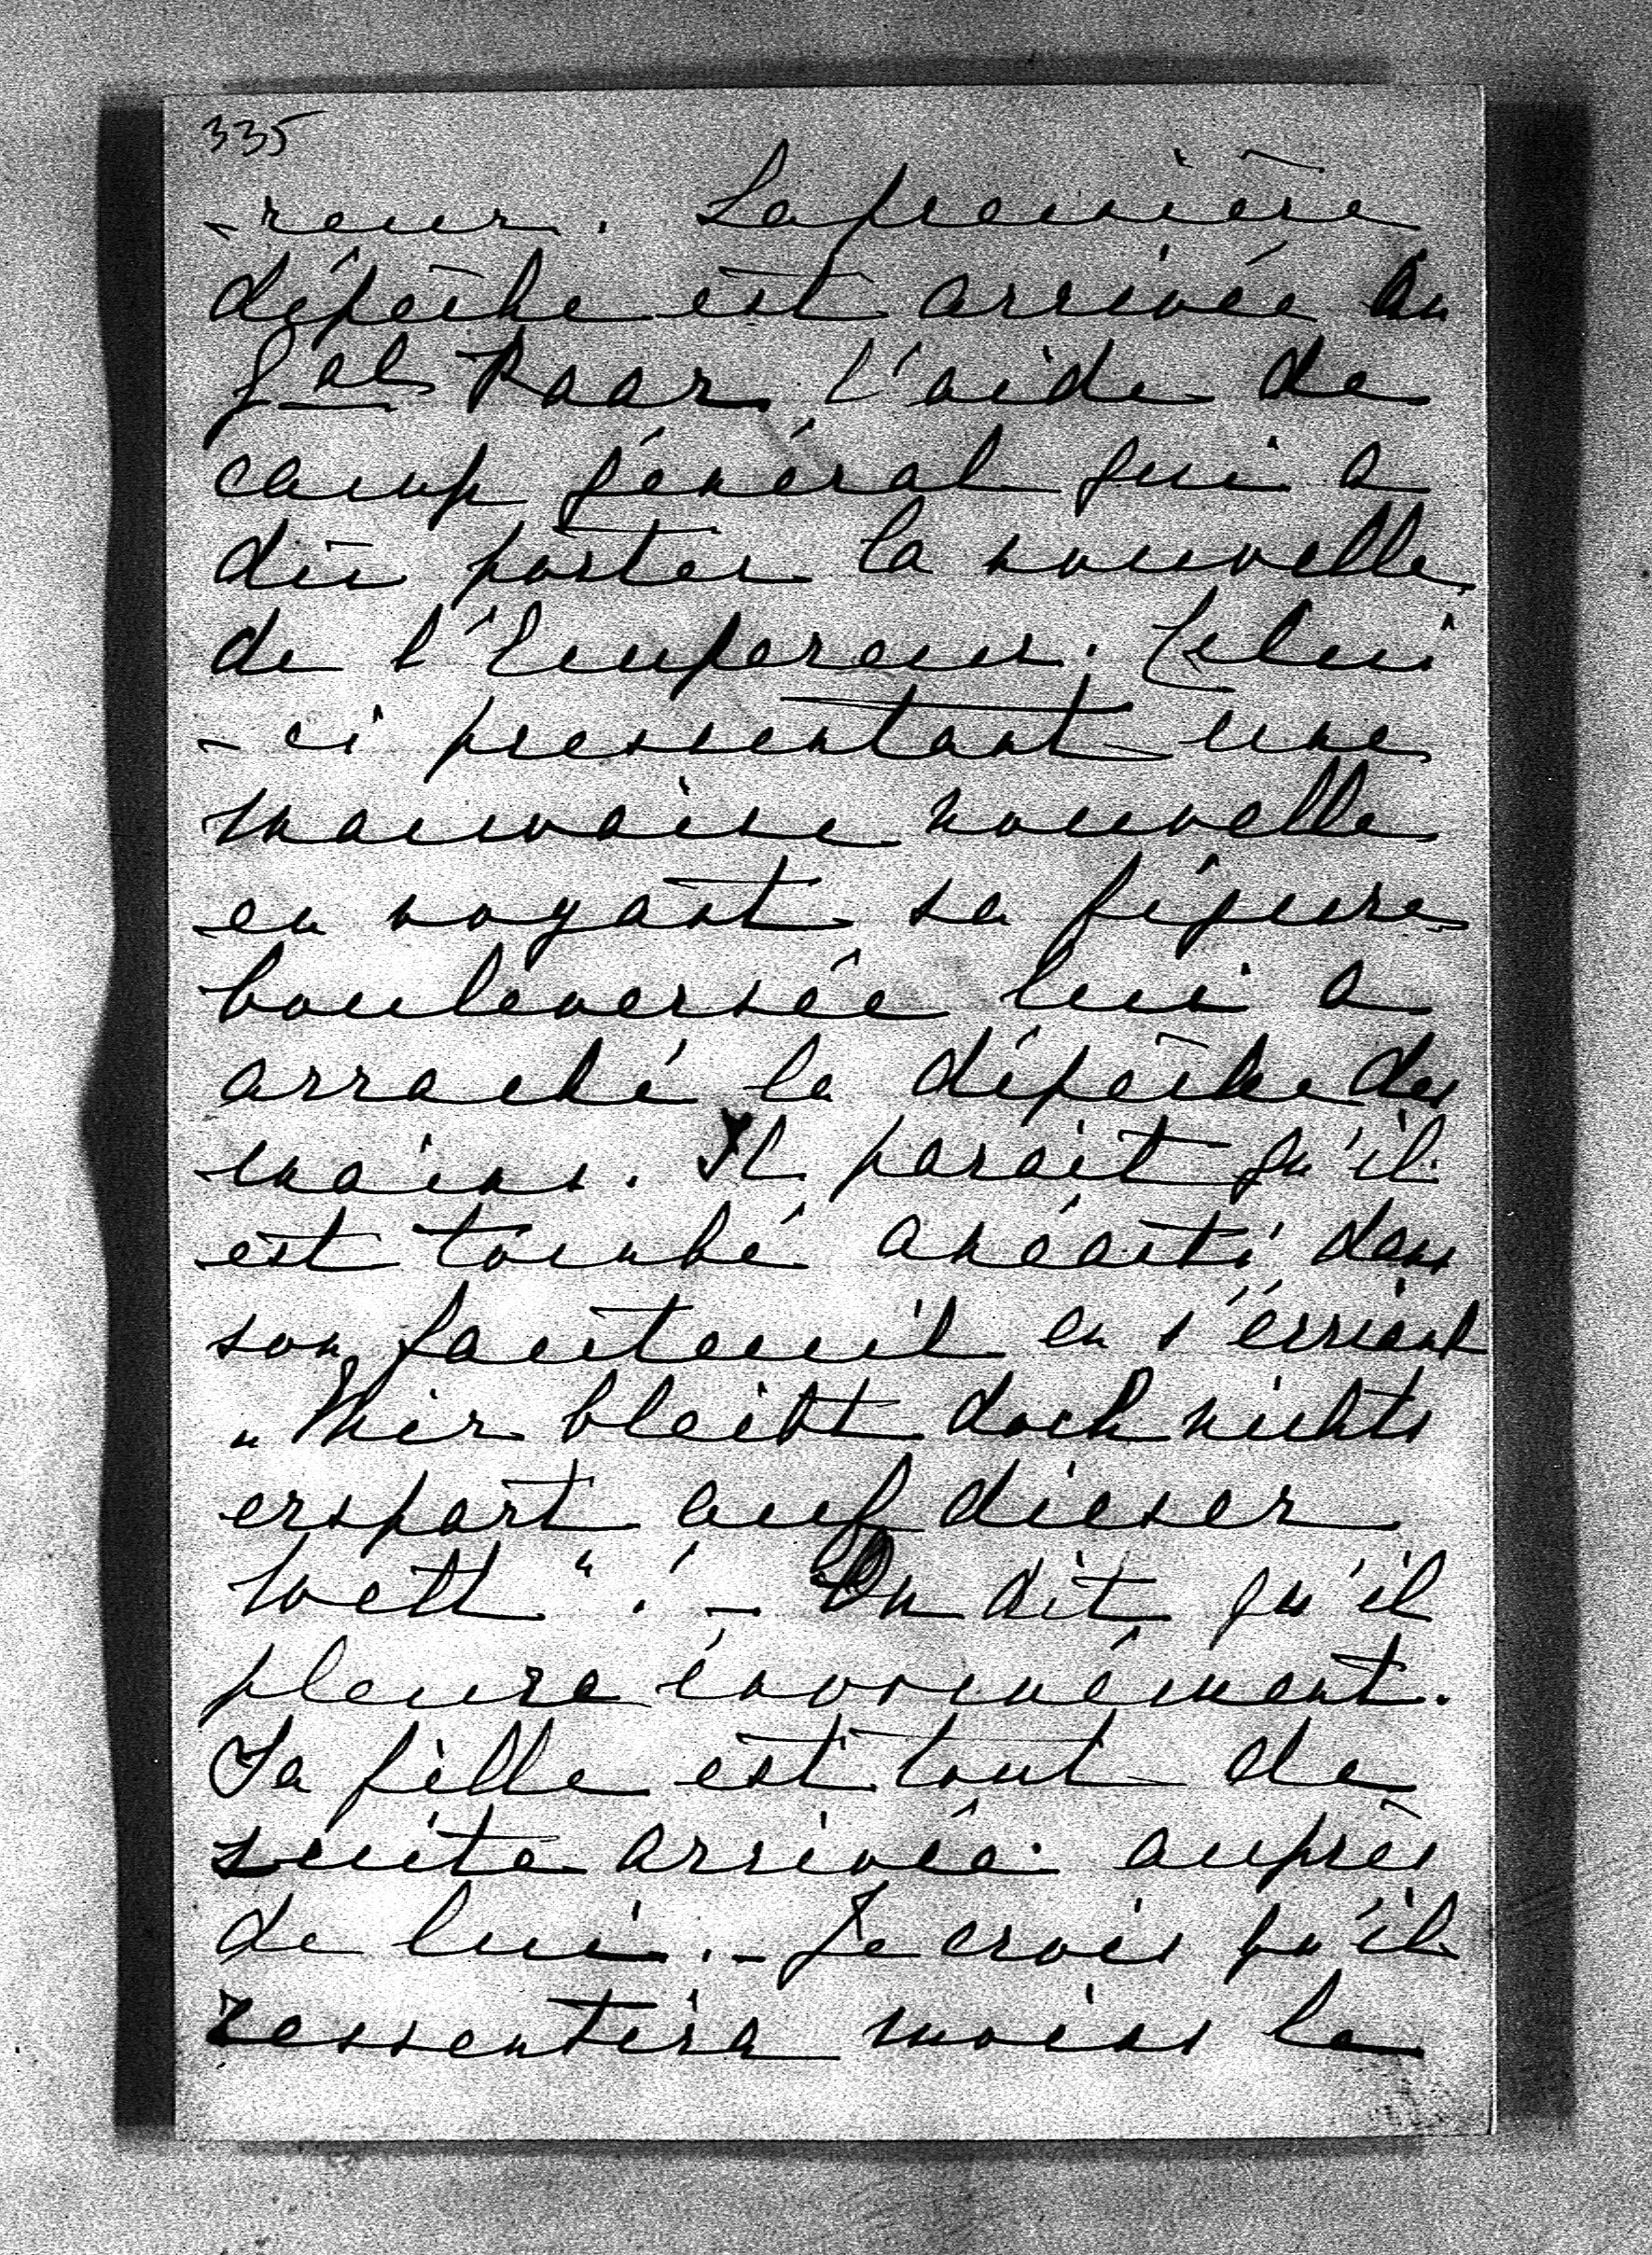 335
-reur. La première
dépêche est arrivée au
Gal Paar l'aide de
camp général qui a
dû porter la nouvelle
de l'Empereur. Celui
-ci pressentant une
mauvaise nouvelle
en voyant sa figure
bouleversée lui a
arraché la dépêche des
mains. Il paraît qu'il
est tombé anéanti dans
son fauteuil en s'écriant
„Mir bleibt doch nichts
erspart auf dieser
Welt“! – On dit qu'il
pleure énormément.
Sa fille est tout de
suite arrivée auprès
de lui. – Je crois qu'il
ressentira moins la